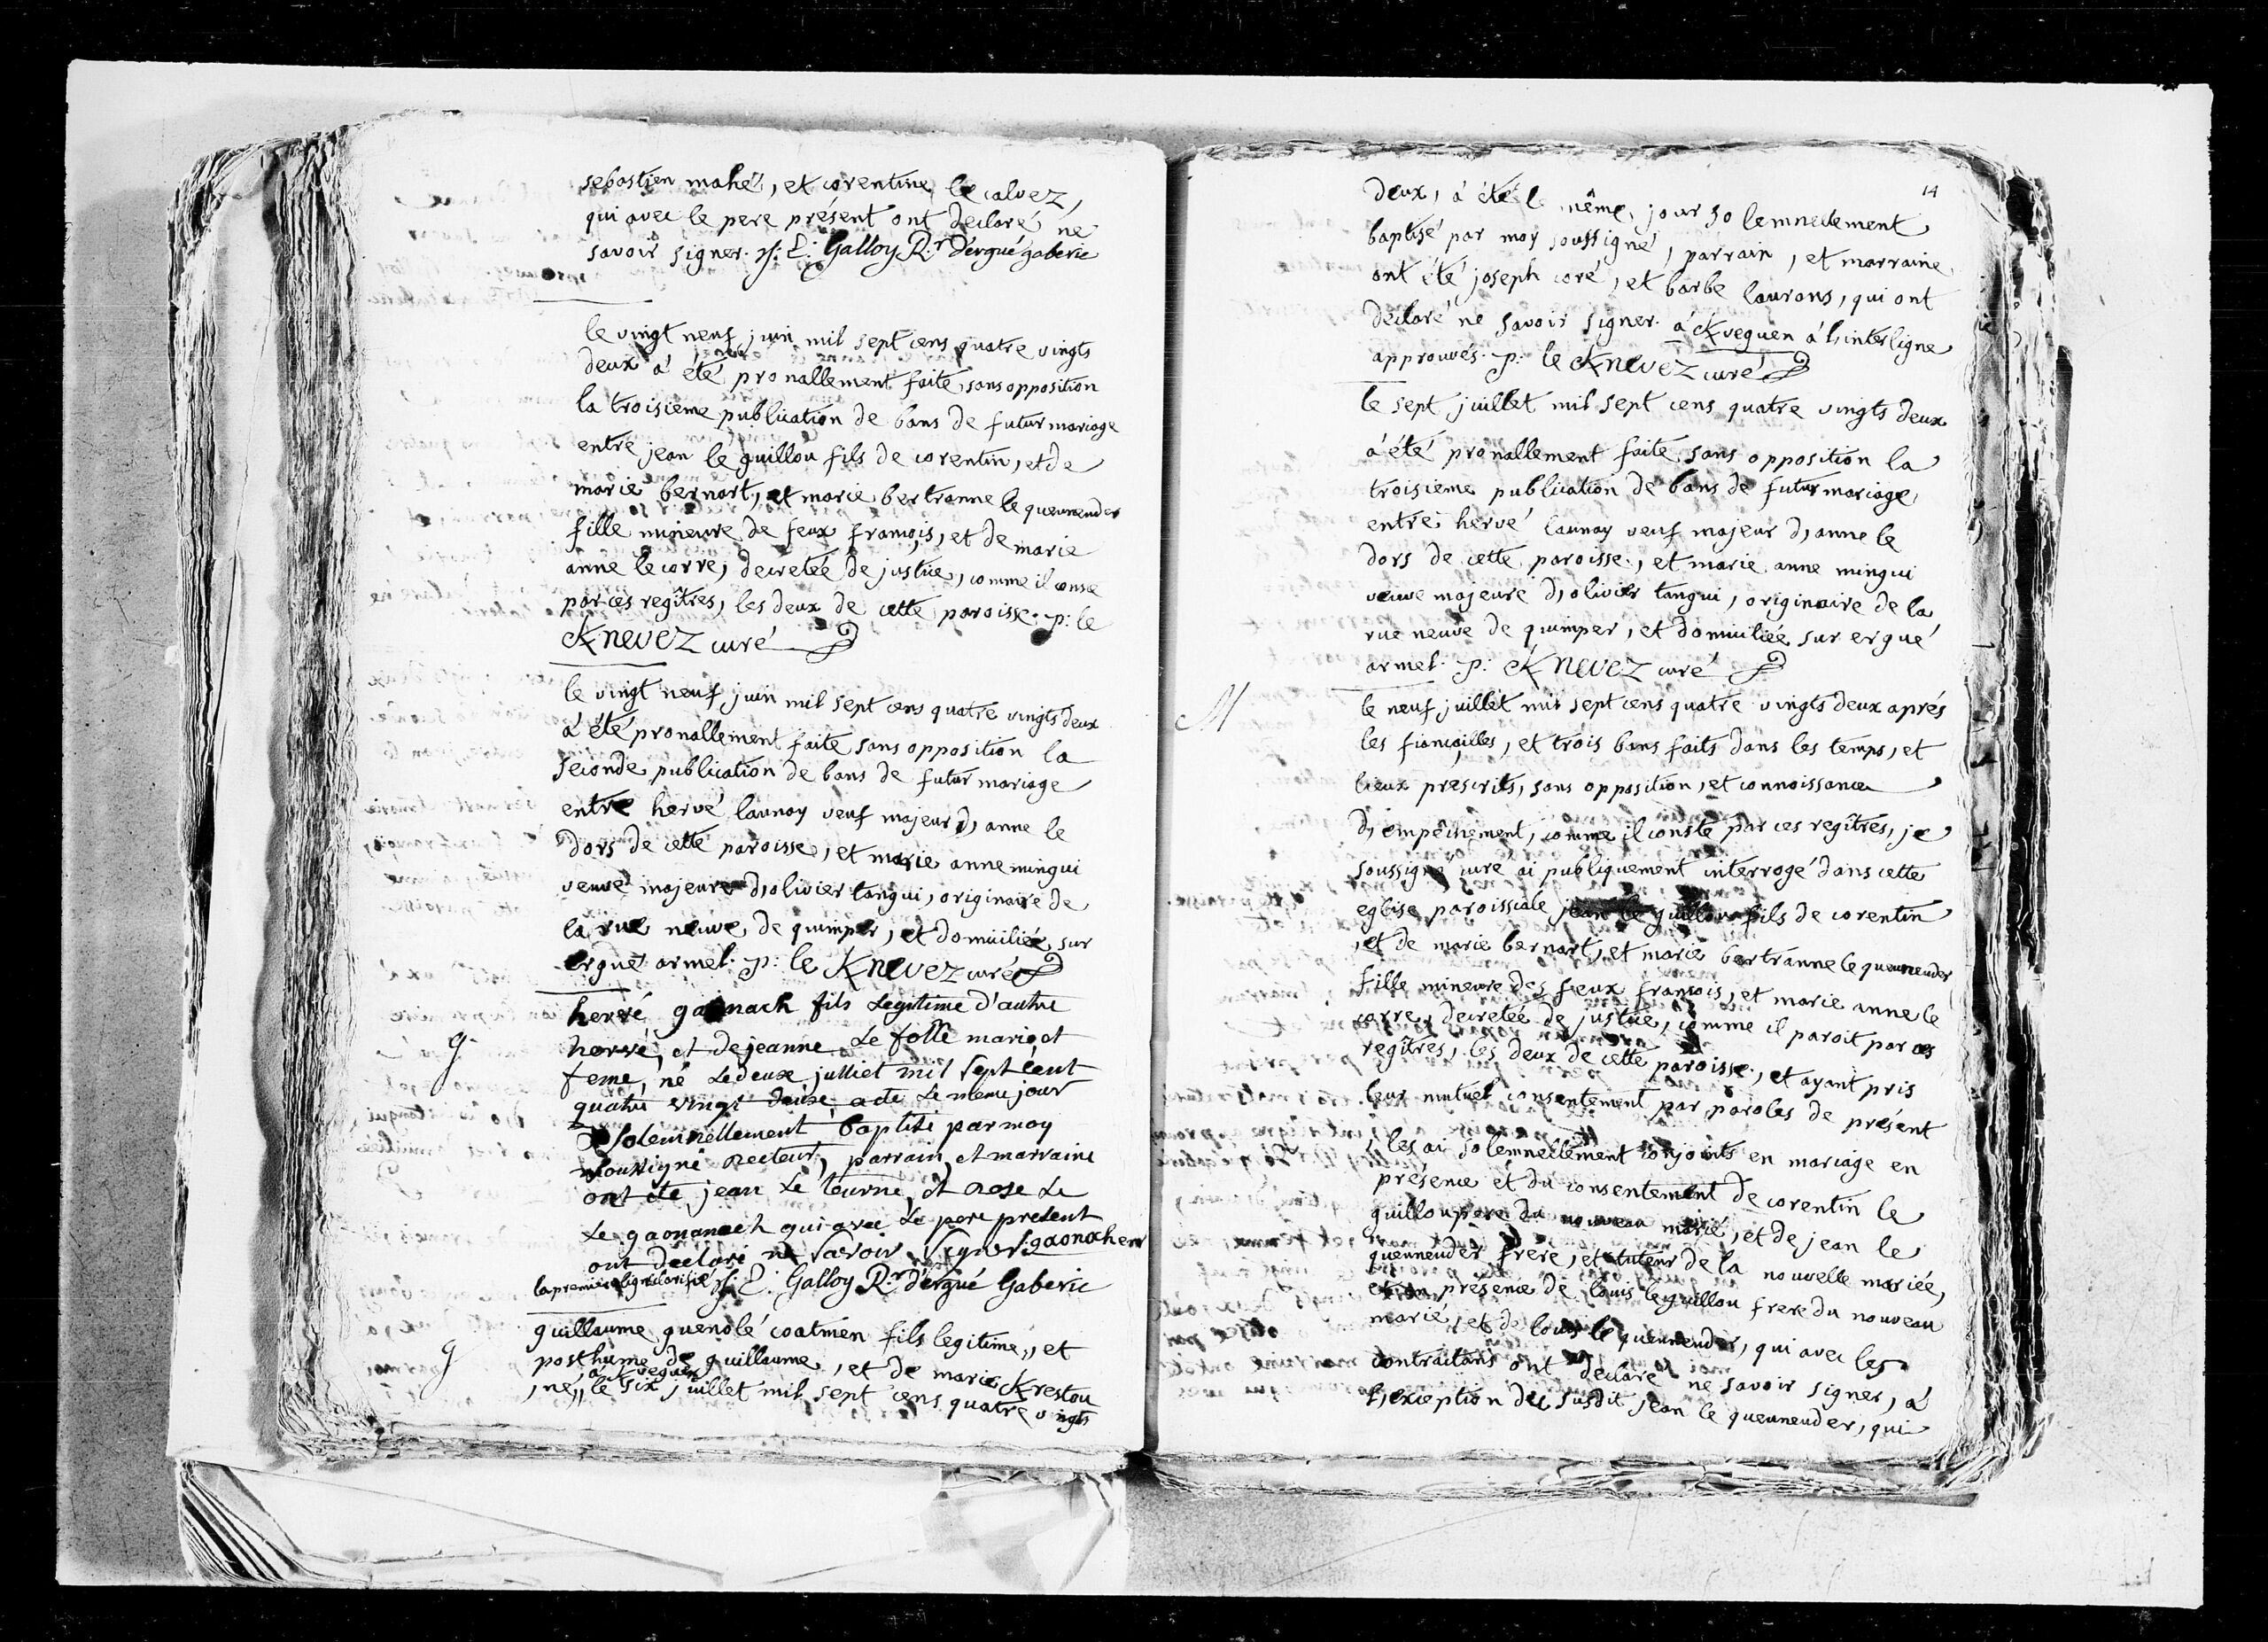 sebastien mahé, et corentine le calvez,
qui avec le pere présent ont declaré ne
savoir signer. Galloy R.r D'ergué gaberic
le vingt neuf juin mil sept cens quatre vingts
deux a été pronallement faite sans opposition
la troisieme publication de bans de futur mariage
entre jean le guillou fils de corentin, et de
marie bernart, et marie bertranne le queuneuder
fille mineure de feux françois, et de marie
anne le corre, decretée de justice, comme il conse
par ces regîtres, les deux de cette paroisse. p: le
Knevez curé
le vingt neuf juin mil sept cens quatre vingts deux
a été pronallement faite sans opposition la
seconde publication de bans de futur mariage
entre hervé launay veuf majeur d, anne le
dors de cette paroisse, et marie anne mingui
veuve majeure d, olivier tangui, originaire de
la rue neuve de quimper, et domiciliée sur
ergué armel. p: le Knevez curé
g
hervé gaonach fils Legitime d'autre
hervé, et de jeanne Le folle mari et
feme, né Le deux julliet mil sept cent
quatre vingt deuxe a ete Le meme jour
solemnellement baptisé par moy
soussigné Recteur, parrain, et marraine
ont ete jean Le tournè, et rose Le
Le gaonanach qui avec Le pere present
ont declaré ne savoir signer. gaonach en
la premiere ligne Galloy R.r d'ergué Gaberic
g
guillaume guenolé coatmen fils legitime, et
posthume de guillaume, et de marie Krestou
, a Kveguen
, ne,, le six juillet mil sept cens quatre vingts
14
deux, a été le même jour solemnellement
baptisé par moy soussigné, parrain, et marraine
ont été joseph coré, et barbe laurans, qui ont
déclaré ne savoir signer. a Kveguen a l, interligne
approuvés. p: le Knevez curé
le sept juillet mil sept cens quatre vingts deux
a été pronallement faite sans opposition la
troisieme publication de bans de futur mariage
entre hervé launay veuf majeur d, anne le
dors de cette paroisse, et marie anne mingui
veuve majeure d, olivier tangui, originaire de la
rue neuve de quimper, et domiciliée sur ergué
armel. p: Knevez curé
M
le neuf juillet mil sept cens quatre vingts deux aprés
les fiançailles, et trois bans faits dans les temps, et
lieux prescrits, sans opposition, et connoissance
d, empêchement, comme il conste par ces regîtres, je
soussigné curé ai publiquement interrogé dans cette
eglise paroissiale jean le guillou fils de corentin
, et de marie bernart, et marie bertranne le queuneuder
fille mineure des feux françois, et marie anne le
corre, decretée de justice, comme il paroit par ces
regîtres, les deux de cette paroisse, et ayant pris
leur mutuel consentement par paroles de présent
, les ai solemnellement conjoints en mariage en
présence et du consentement de corentin le
guillou pere du nouveau marié, et de jean le
queuneuder frere, et tuteur de la nouvelle mariée,
et en présence de louis le guillou frere du nouveau
marié, et de louis le queuneuder, qui avec les
contractans ont declaré ne savoir signer, à
l, exception du susdit jean le queuneuder, qui